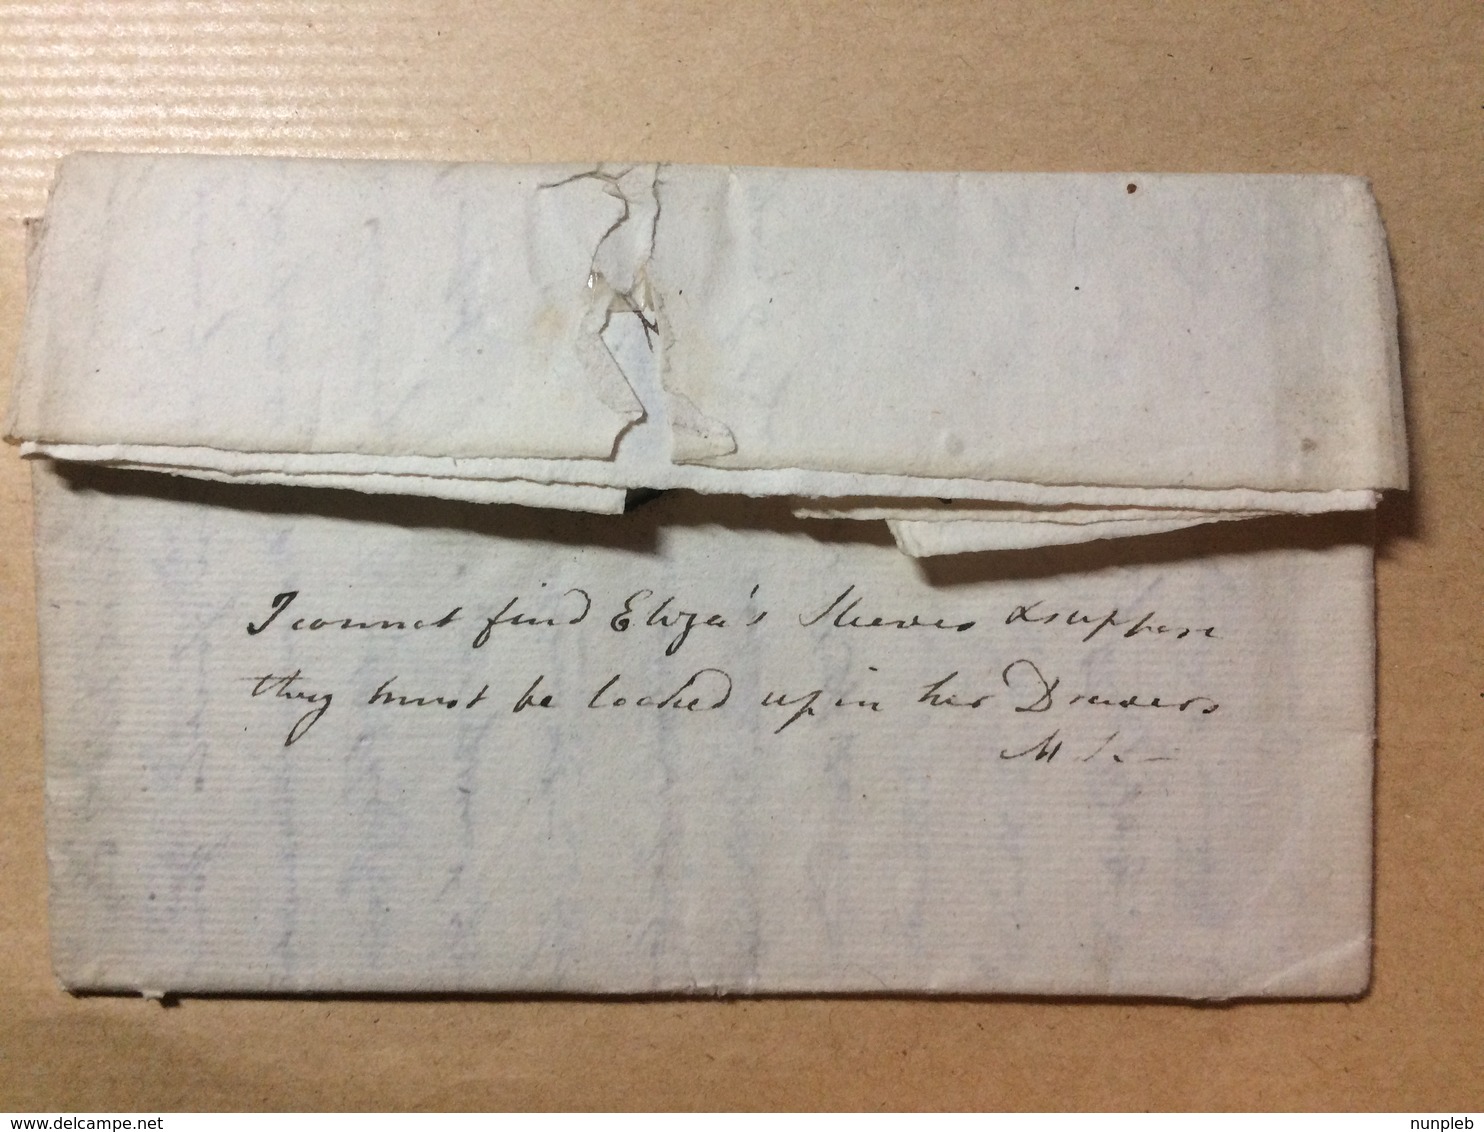 I cannot find Eliza's Sleeves & suppose
they must be locked up in her Drawers
M
delcampe.net
nunpleb